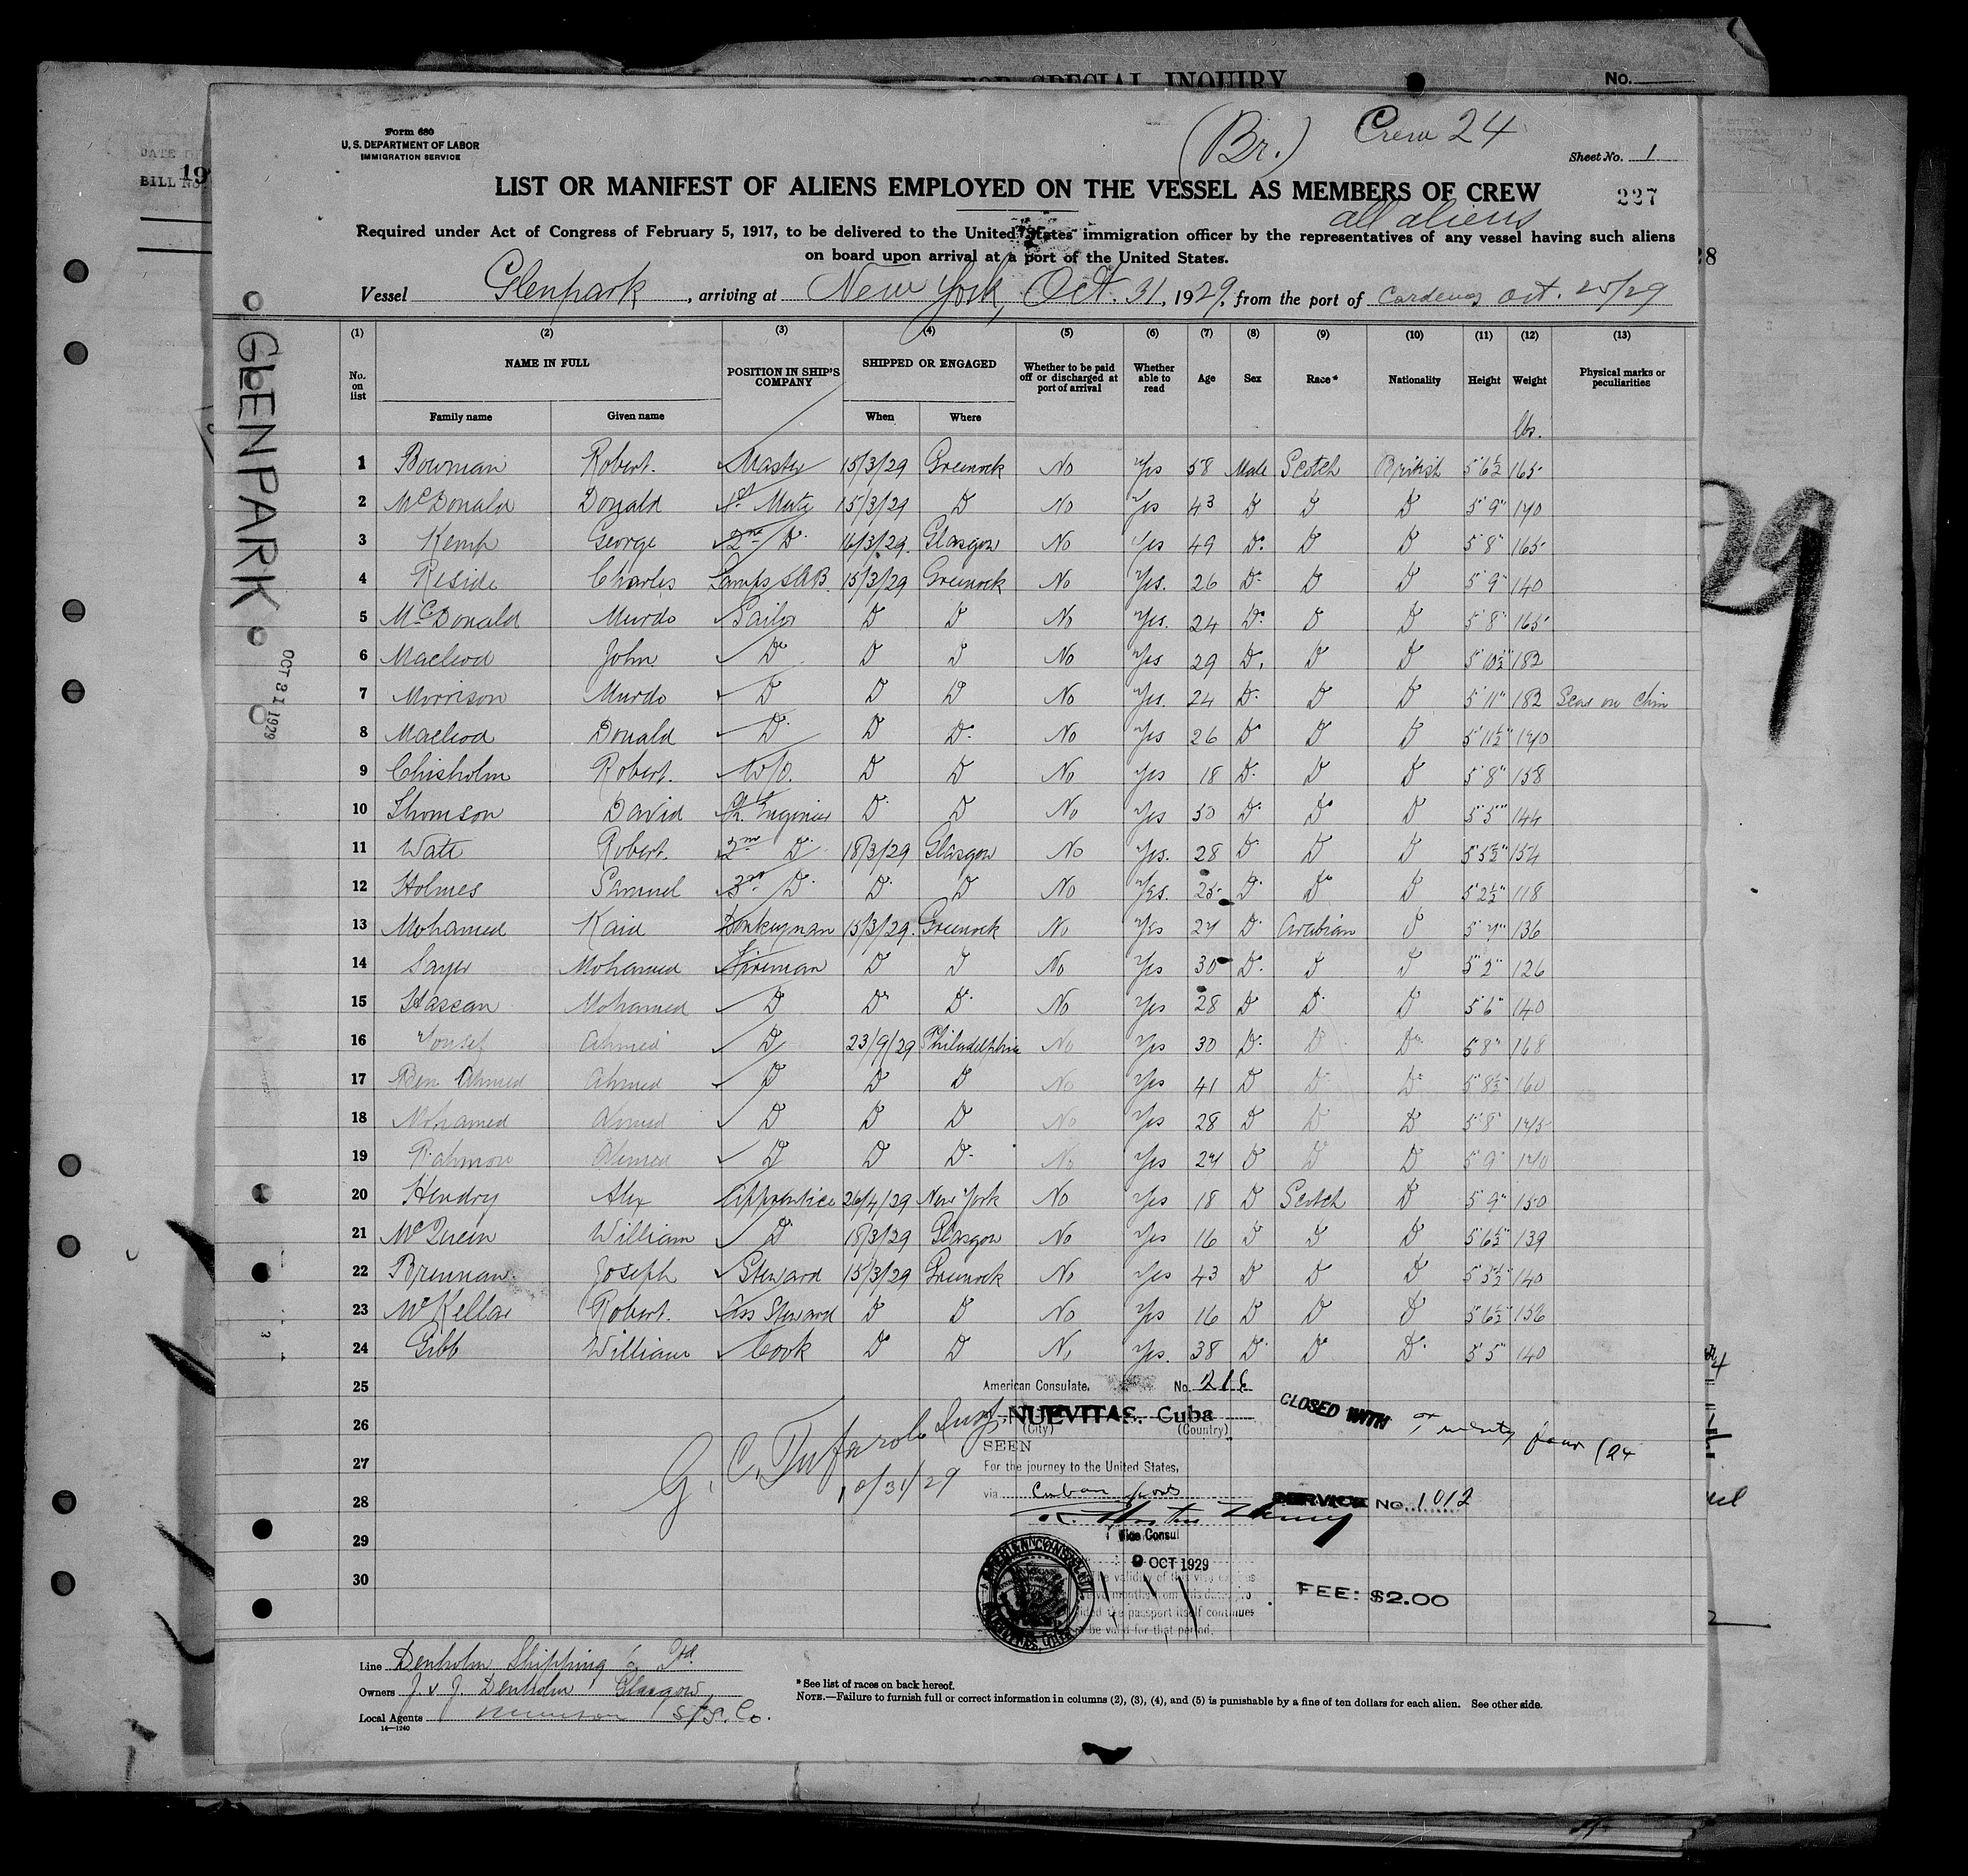 FOR SPECIAL INQUIRY No.
Form 680
U. S. DEPARTMENT OF LABOR
IMMIGRATION SERVICE
(Br.) Crew 24
Sheet No. 1
LIST OR MANIFEST OF ALIENS EMPLOYED ON THE VESSEL AS MEMBERS OF CREW
227
all aliens
Required under Act of Congress of February 5, 1917, to be delivered to the United States immigration officer by the representatives of any vessel having such aliens
on board upon arrival at a port of the United States.
Vessel Glenpark, arriving at New York, Oct. 31, 1929, from the port of Cardenas Oct. 25/29
(1) (2) (3) (4) (5) (6) (7) (8) (9) (10) (11) (12) (13)
No. on list NAME IN FULL POSITION IN SHIP'S COMPANY SHIPPED OR ENGAGED Whether to be paid off or discharged at port of arrival Whether able to read Age Sex Race* Nationality Height Weight Physical marks or peculiarities
Family name Given name When Where
lbs.
1 Bowman Robert. Master 15/3/29 Greenock No Yes 58 Male Scotch British 5'6½ 165
2 McDonald Donald 1st Mate 15/3/29 D No Yes 43 D D D 5'9" 170
3 Kemp George 2nd D 16/3/29. Glasgow No Yes 49 D. D D 5'8" 165
4 Reside Charles Lamps & AB. 15/3/29 Greenock No Yes. 26 D D D 5'9" 140
5 McDonald Murdo Sailor D D No Yes. 24 D. D D 5'8" 165
6 Macleod John D D D No Yes 29 D. D D 5'10½" 182
7 Morrison Murdo D D D No Yes. 24 D. D D 5'11" 182 Scar on Chin
8 Macleod Donald D D D. No Yes 26 D D D 5'11½" 170
9 Chisholm Robert. W/O. D D No Yes 18 D. D D 5'8" 158
10 Thomson David Ch. Engineer D. D No Yes 50 D. D D 5'5" 144
11 Watt Robert. 2nd D. 18/3/29 Glasgow No Yes. 28 D D D 5'5½" 154
12 Holmes Samuel 3rd D. D. D No Yes. 25 D. D D 5'2½" 118
13 Mohamed Kaid Donkeyman 15/3/29. Greenock No Yes 27 D. Arabian D 5'7" 136
14 Sayer Mohamed Fireman D D No Yes 30 D. D D 5'2" 126
15 Hassan Mohamed D D D. No Yes 28 D D. D 5'6" 140
16 Yousef Ahmed D 23/9/29 Philadelphia No Yes 30 D. D D 5'8" 168
17 Ben Ahmed Ahmed D D D No Yes 41 D D D 5'8½" 160
18 Mohamed Ahmed D D D No Yes 28 D D D 5'8" 175
19 Rahmon Ahmed D D D. No Yes 27 D D D 5'9" 170
20 Hendry Alex Apprentice 26/4/29 New York No Yes 18 D Scotch D 5'9" 150
21 McQueen William D 18/3/29 Glasgow No Yes 16 D D D 5'6½" 139
22 Brennan Joseph Steward 15/3/29 Greenock No Yes 43 D D D 5'5½" 140
23 McKellar Robert. Ass Steward D D No Yes 16 D D D 5'6½" 156
24 Gibb William Cook D D No Yes. 38 D. D D. 5'5" 140
25
26
27
28
29
30
American Consulate. No. 216
NUEVITAS, Cuba
(City) (Country)
SEEN
For the journey to the United States,
via Cuban ports
Vice Consul
9 OCT 1929
The validity of this visa expires
months from this date pro
vided the passport itself continues
to be valid for that period.
G. C. Tufarolo Insp.
10/31/29
CLOSED WITH Twenty four (24
SERVICE NO. 1012
FEE: $2.00
Line Denholm Shipping Co Ltd.
Owners J. & J. Denholm Glasgow
Local Agents Munson S/S. Co.
14—1240
* See list of races on back hereof.
NOTE.—Failure to furnish full or correct information in columns (2), (3), (4), and (5) is punishable by a fine of ten dollars for each alien. See other side.
GLENPARK
OCT 31 1929
29